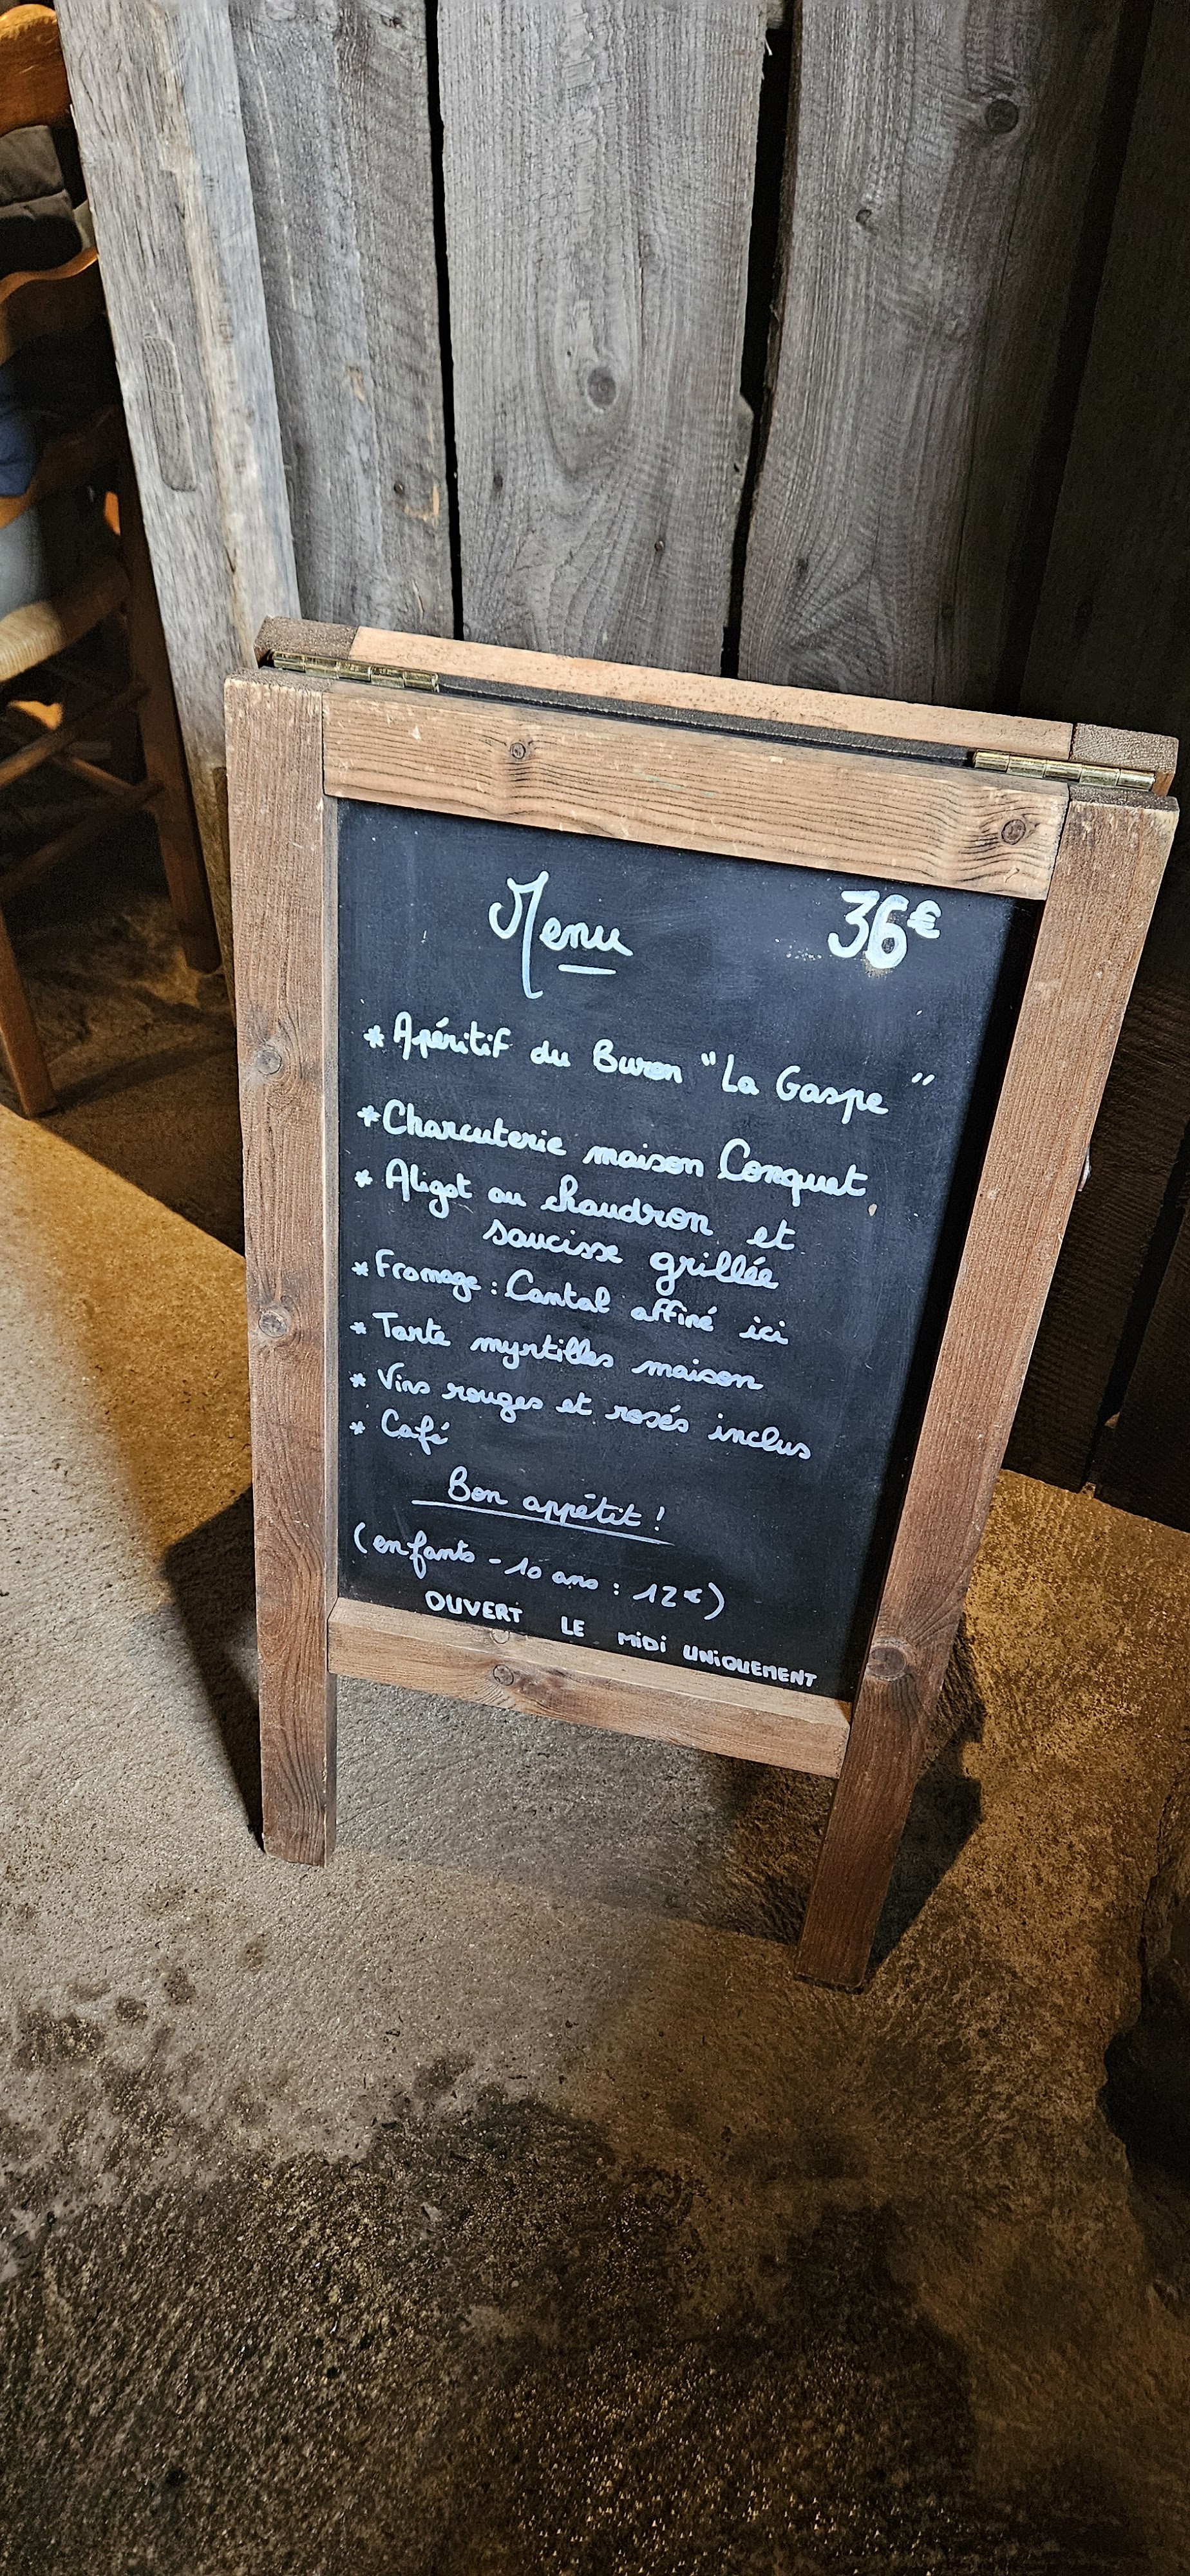 Menu 36€
* Apéritif du Buron "La Gaspe"
* Charcuterie maison Conquet
* Aligot au chaudron et
saucisse grillée
* Fromage : Cantal affiné ici
* Tarte myrtilles maison
* Vins rouges et rosés inclus
* Café
Bon appétit !
(enfants - 10 ans : 12€)
OUVERT LE MiDi UNiQUEMENT